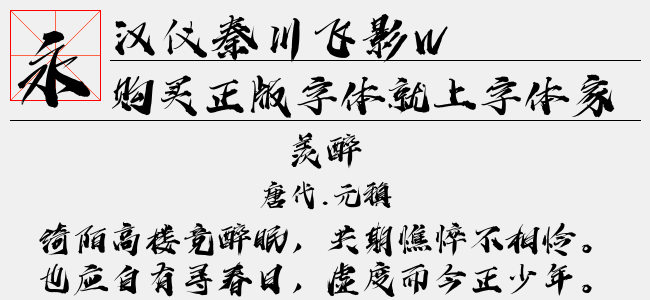 永
汉仪秦川飞影W
购买正版字体就上字体家
羡醉
唐代.元稹
绮陌高楼竞醉眠，共期憔悴不相怜。
也应自有寻春日，虚度而今正少年。